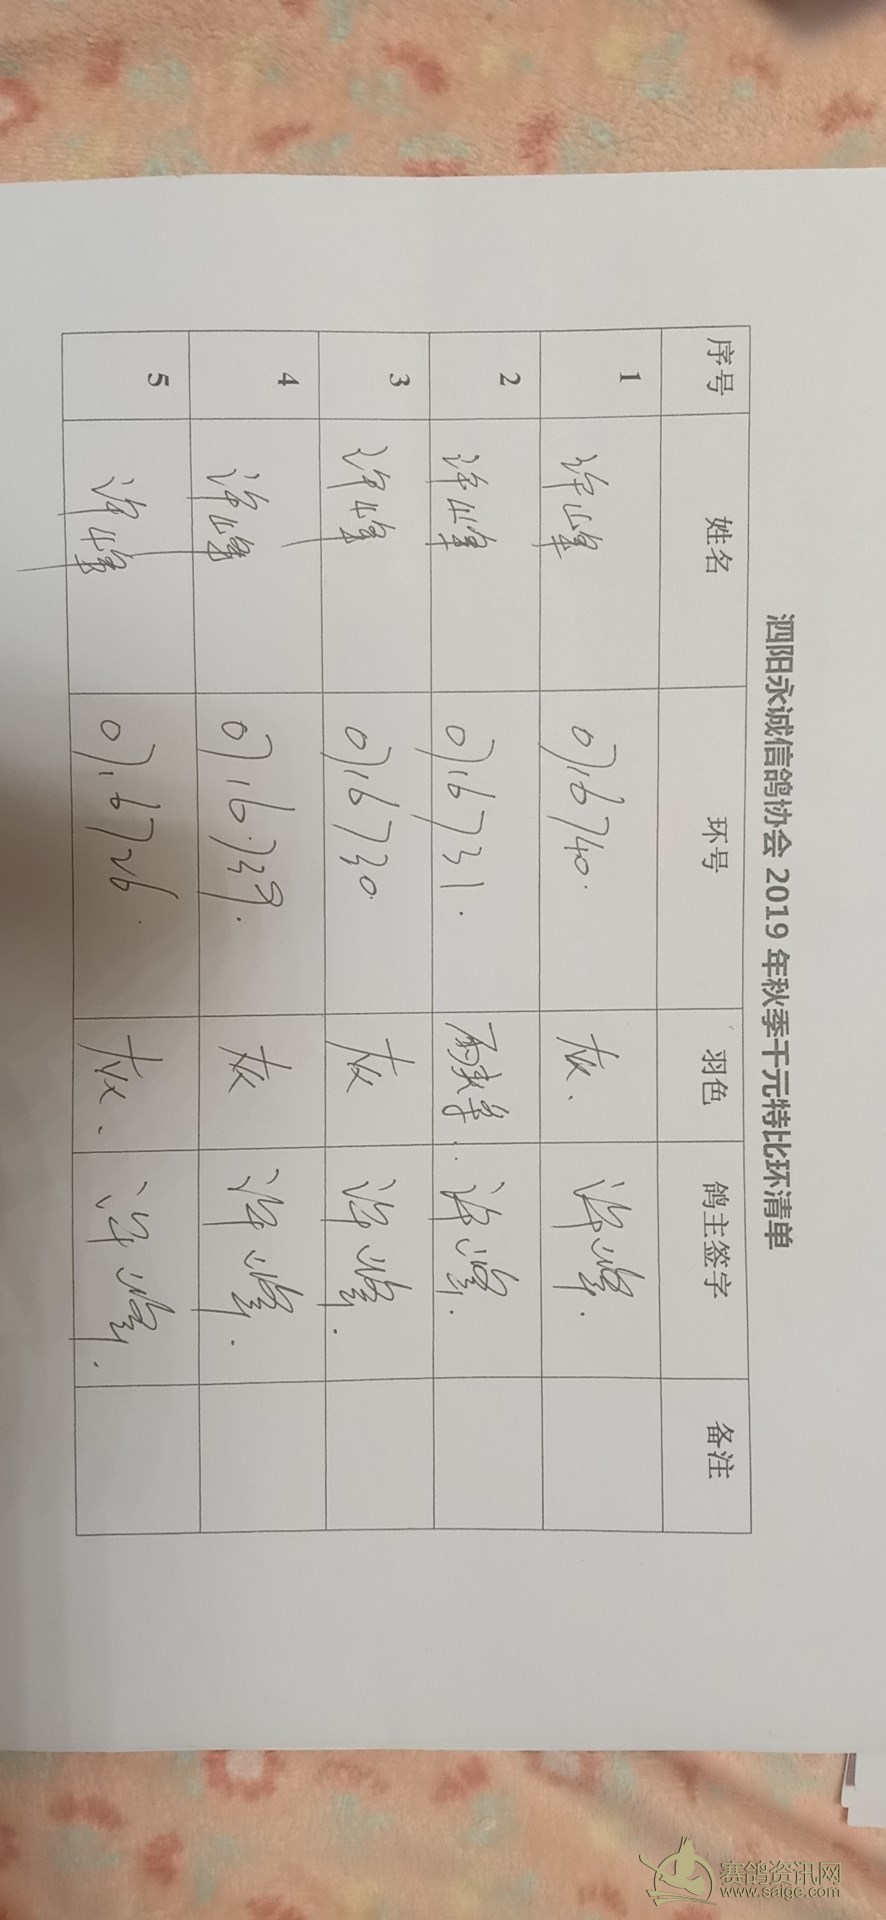 泗阳永诚信鸽协会 2019 年秋季千元特比环清单
序号 姓名 环号 羽色 鸽主签字 备注
1 许峰 0716740. 灰. 许峰.
2 许峰 0716731. 许峰.
3 许峰 0716730. 灰 许峰.
4 许峰 0716739. 灰 许峰.
5 许峰 0716726. 灰. 许峰.
赛鸽资讯网
www.saigc.com